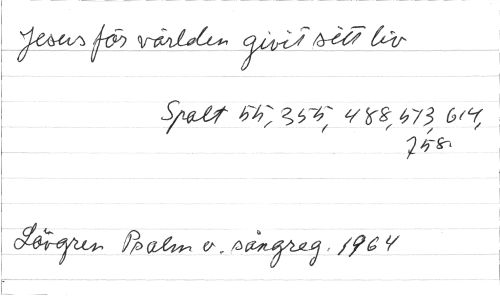 Jesus för världen givit sitt liv
Spalt 55, 355, 488, 513, 614,
758.
Lövgren Psalm o. sångreg. 1964